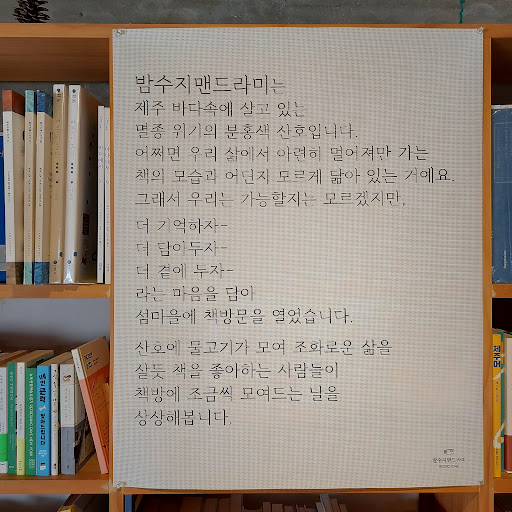 밤수지맨드라미는
제주 바다속에 살고 있는
멸종 위기의 분홍색 산호입니다.
어쩌면 우리 삶에서 아련히 멀어져만 가는
책의 모습과 어딘지 모르게 닮아 있는 거예요.
그래서 우리는 가능할지는 모르겠지만,
더 기억하자-
더 담아두자-
더 곁에 두자-
라는 마음을 담아
섬마을에 책방문을 열었습니다.
산호에 물고기가 모여 조화로운 삶을
살듯 책을 좋아하는 사람들이
책방에 조금씩 모여드는 날을
상상해봅니다.
밤수지맨드라미
제주어